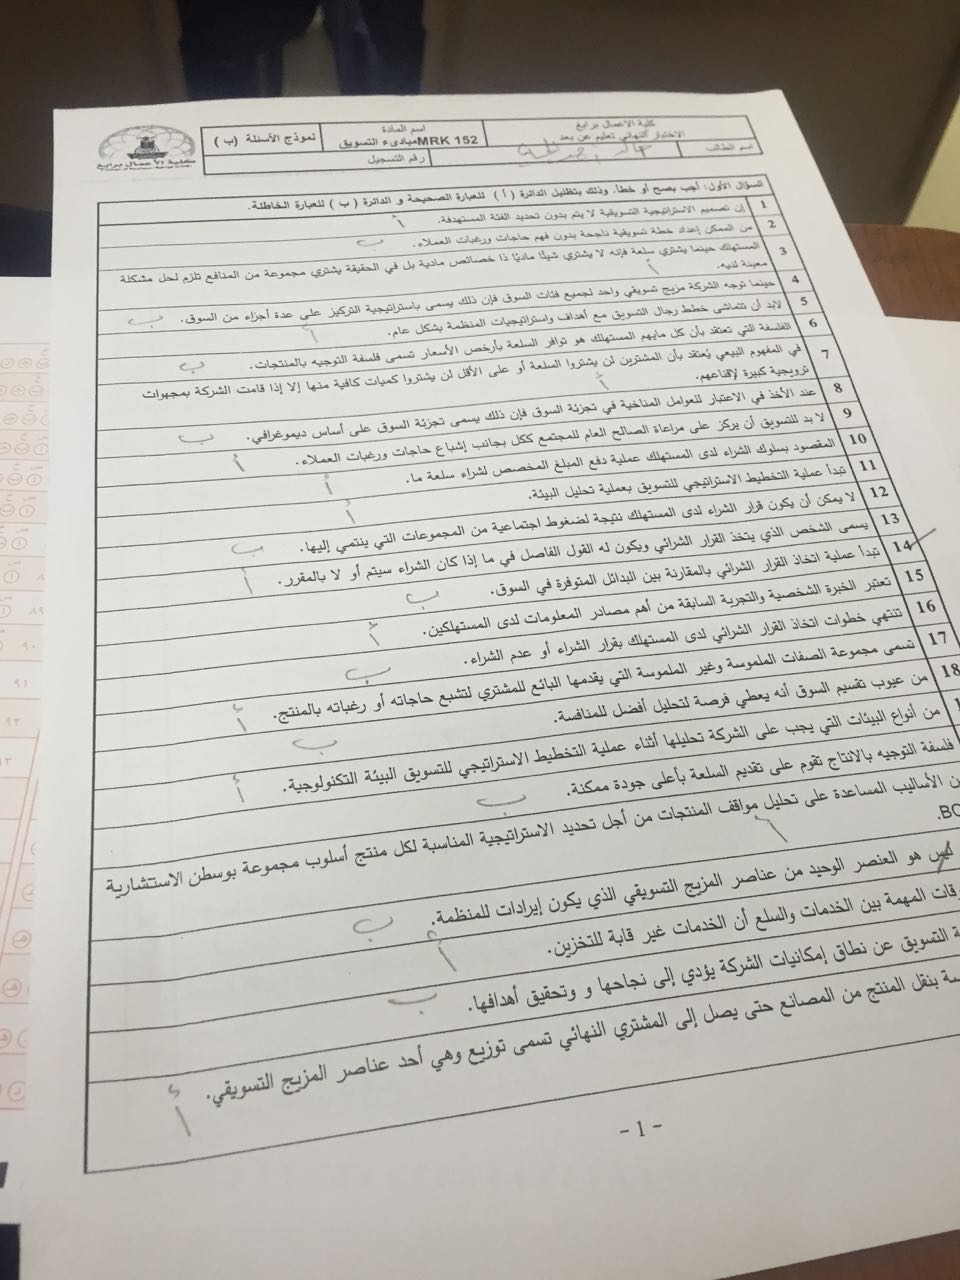 كلية الأعمال برابغ
الاختبار النهائي تعليم عن بعد
اسم المادة
MRK 152 مبادىء التسويق
نموذج الأسئلة (ب)
اسم الطالب
رقم التسجيل
كلية الأعمال برابغ
السؤال الأول: أجب بصح أو خطأ. وذلك بتظليل الدائرة ( أ ) للعبارة الصحيحة و الدائرة ( ب ) للعبارة الخاطئة.
1 إن تصميم الاستراتيجية التسويقية لا يتم بدون تحديد الفئة المستهدفة. أ
2 من الممكن إعداد خطة تسويقية ناجحة بدون فهم حاجات ورغبات العملاء. ب
3 المستهلك حينما يشتري سلعة فإنه لا يشتري شيئًا ماديًا ذا خصائص مادية بل في الحقيقة يشتري مجموعة من المنافع تلزم لحل مشكلة
معينة لديه. أ
4 حينما توجه الشركة مزيج تسويقي واحد لجميع فئات السوق فإن ذلك يسمى باستراتيجية التركيز على عدة أجزاء من السوق. ب
5 لابد أن تتماشى خطط رجال التسويق مع أهداف واستراتيجيات المنظمة بشكل عام. أ
6 الفلسفة التي تعتقد بأن كل مايهم المستهلك هو توافر السلعة بأرخص الأسعار تسمى فلسفة التوجيه بالمنتجات. ب
7 في المفهوم البيعي يُعتقد بأن المشترين لن يشتروا السلعة أو على الأقل لن يشتروا كميات كافية منها إلا إذا قامت الشركة بمجهودات
ترويجية كبيرة لإقناعهم. أ
8 عند الأخذ في الاعتبار للعوامل المناخية في تجزئة السوق فإن ذلك يسمى تجزئة السوق على أساس ديموغرافي. ب
9 لا بد للتسويق أن يركز على مراعاة الصالح العام للمجتمع ككل بجانب إشباع حاجات ورغبات العملاء. أ
10 المقصود بسلوك الشراء لدى المستهلك عملية دفع المبلغ المخصص لشراء سلعة ما. أ
11 تبدأ عملية التخطيط الاستراتيجي للتسويق بعملية تحليل البيئة. أ
12 لا يمكن أن يكون قرار الشراء لدى المستهلك نتيجة لضغوط اجتماعية من المجموعات التي ينتمي إليها. ب
13 يسمى الشخص الذي يتخذ القرار الشرائي ويكون له القول الفاصل في ما إذا كان الشراء سيتم أو لا بالمقرر. أ
14 تبدأ عملية اتخاذ القرار الشرائي بالمقارنة بين البدائل المتوفرة في السوق. ب
15 تعتبر الخبرة الشخصية والتجربة السابقة من أهم مصادر المعلومات لدى المستهلكين. أ
16 تنتهي خطوات اتخاذ القرار الشرائي لدى المستهلك بقرار الشراء أو عدم الشراء. ب
17 تسمى مجموعة الصفات الملموسة وغير الملموسة التي يقدمها البائع للمشتري لتشبع حاجاته أو رغباته بالمنتج. أ
18 من عيوب تقسيم السوق أنه يعطي فرصة لتحليل أفضل للمنافسة. ب
من أنواع البيئات التي يجب على الشركة تحليلها أثناء عملية التخطيط الاستراتيجي للتسويق البيئة التكنولوجية. أ
فلسفة التوجيه بالانتاج تقوم على تقديم السلعة بأعلى جودة ممكنة. ب
الأساليب المساعدة على تحليل مواقف المنتجات من أجل تحديد الاستراتيجية المناسبة لكل منتج أسلوب مجموعة بوسطن الاستشارية
أ
هو العنصر الوحيد من عناصر المزيج التسويقي الذي يكون إيرادات للمنظمة. ب
المهمة بين الخدمات والسلع أن الخدمات غير قابة للتخزين. أ
التسويق عن نطاق إمكانيات الشركة يؤدي إلى نجاحها و وتحقيق أهدافها. ب
بنقل المنتج من المصانع حتى يصل إلى المشتري النهائي تسمى توزيع وهي أحد عناصر المزيج التسويقي. أ
- 1 -